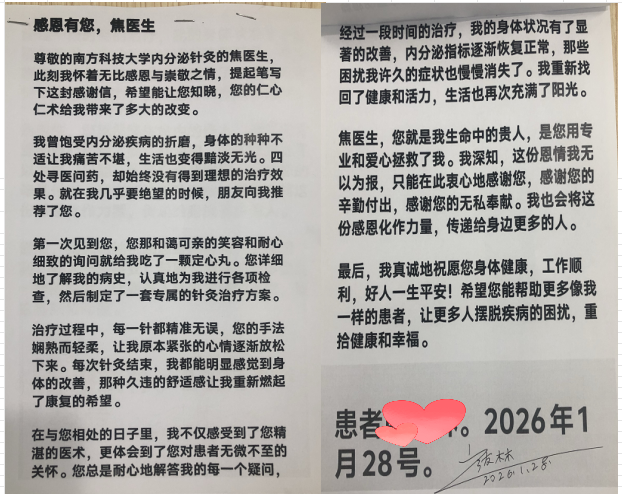 感恩有您，焦医生
尊敬的南方科技大学内分泌针灸的焦医生，
此刻我怀着无比感恩与崇敬之情，提起笔写
下这封感谢信，希望能让您知晓，您的仁心
仁术给我带来了多大的改变。
我曾饱受内分泌疾病的折磨，身体的种种不
适让我痛苦不堪，生活也变得黯淡无光。四
处寻医问药，却始终没有得到理想的治疗效
果。就在我几乎要绝望的时候，朋友向我推
荐了您。
第一次见到您，您那和蔼可亲的笑容和耐心
细致的询问就给我吃了一颗定心丸。您详细
地了解我的病史，认真地为我进行各项检
查，然后制定了一套专属的针灸治疗方案。
治疗过程中，每一针都精准无误，您的手法
娴熟而轻柔，让我原本紧张的心情逐渐放松
下来。每次针灸结束，我都能明显感觉到身
体的改善，那种久违的舒适感让我重新燃起
了康复的希望。
在与您相处的日子里，我不仅感受到了您精
湛的医术，更体会到了您对患者无微不至的
关怀。您总是耐心地解答我的每一个疑问，
经过一段时间的治疗，我的身体状况有了显
著的改善，内分泌指标逐渐恢复正常，那些
困扰我许久的症状也慢慢消失了。我重新找
回了健康和活力，生活也再次充满了阳光。
焦医生，您就是我生命中的贵人，是您用专
业和爱心拯救了我。我深知，这份恩情我无
以为报，只能在此衷心地感谢您，感谢您的
辛勤付出，感谢您的无私奉献。我也会将这
份感恩化作力量，传递给身边更多的人。
最后，我真诚地祝愿您身体健康，工作顺
利，好人一生平安！希望您能帮助更多像我
一样的患者，让更多人摆脱疾病的困扰，重
拾健康和幸福。
患者。2026年1
月28号。
2026.1.28.